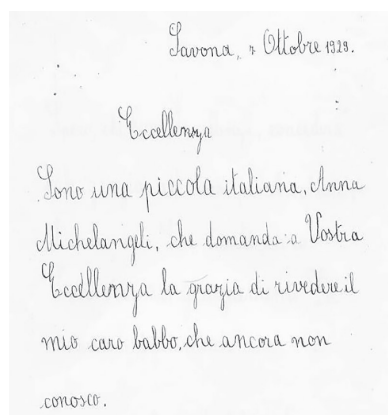 Savona, 7 Ottobre 1929.
Eccellenza
Sono una piccola italiana, Anna
Michelangeli, che domanda a Vostra
Eccellenza la grazia di rivedere il
mio caro babbo, che ancora non
conosco.